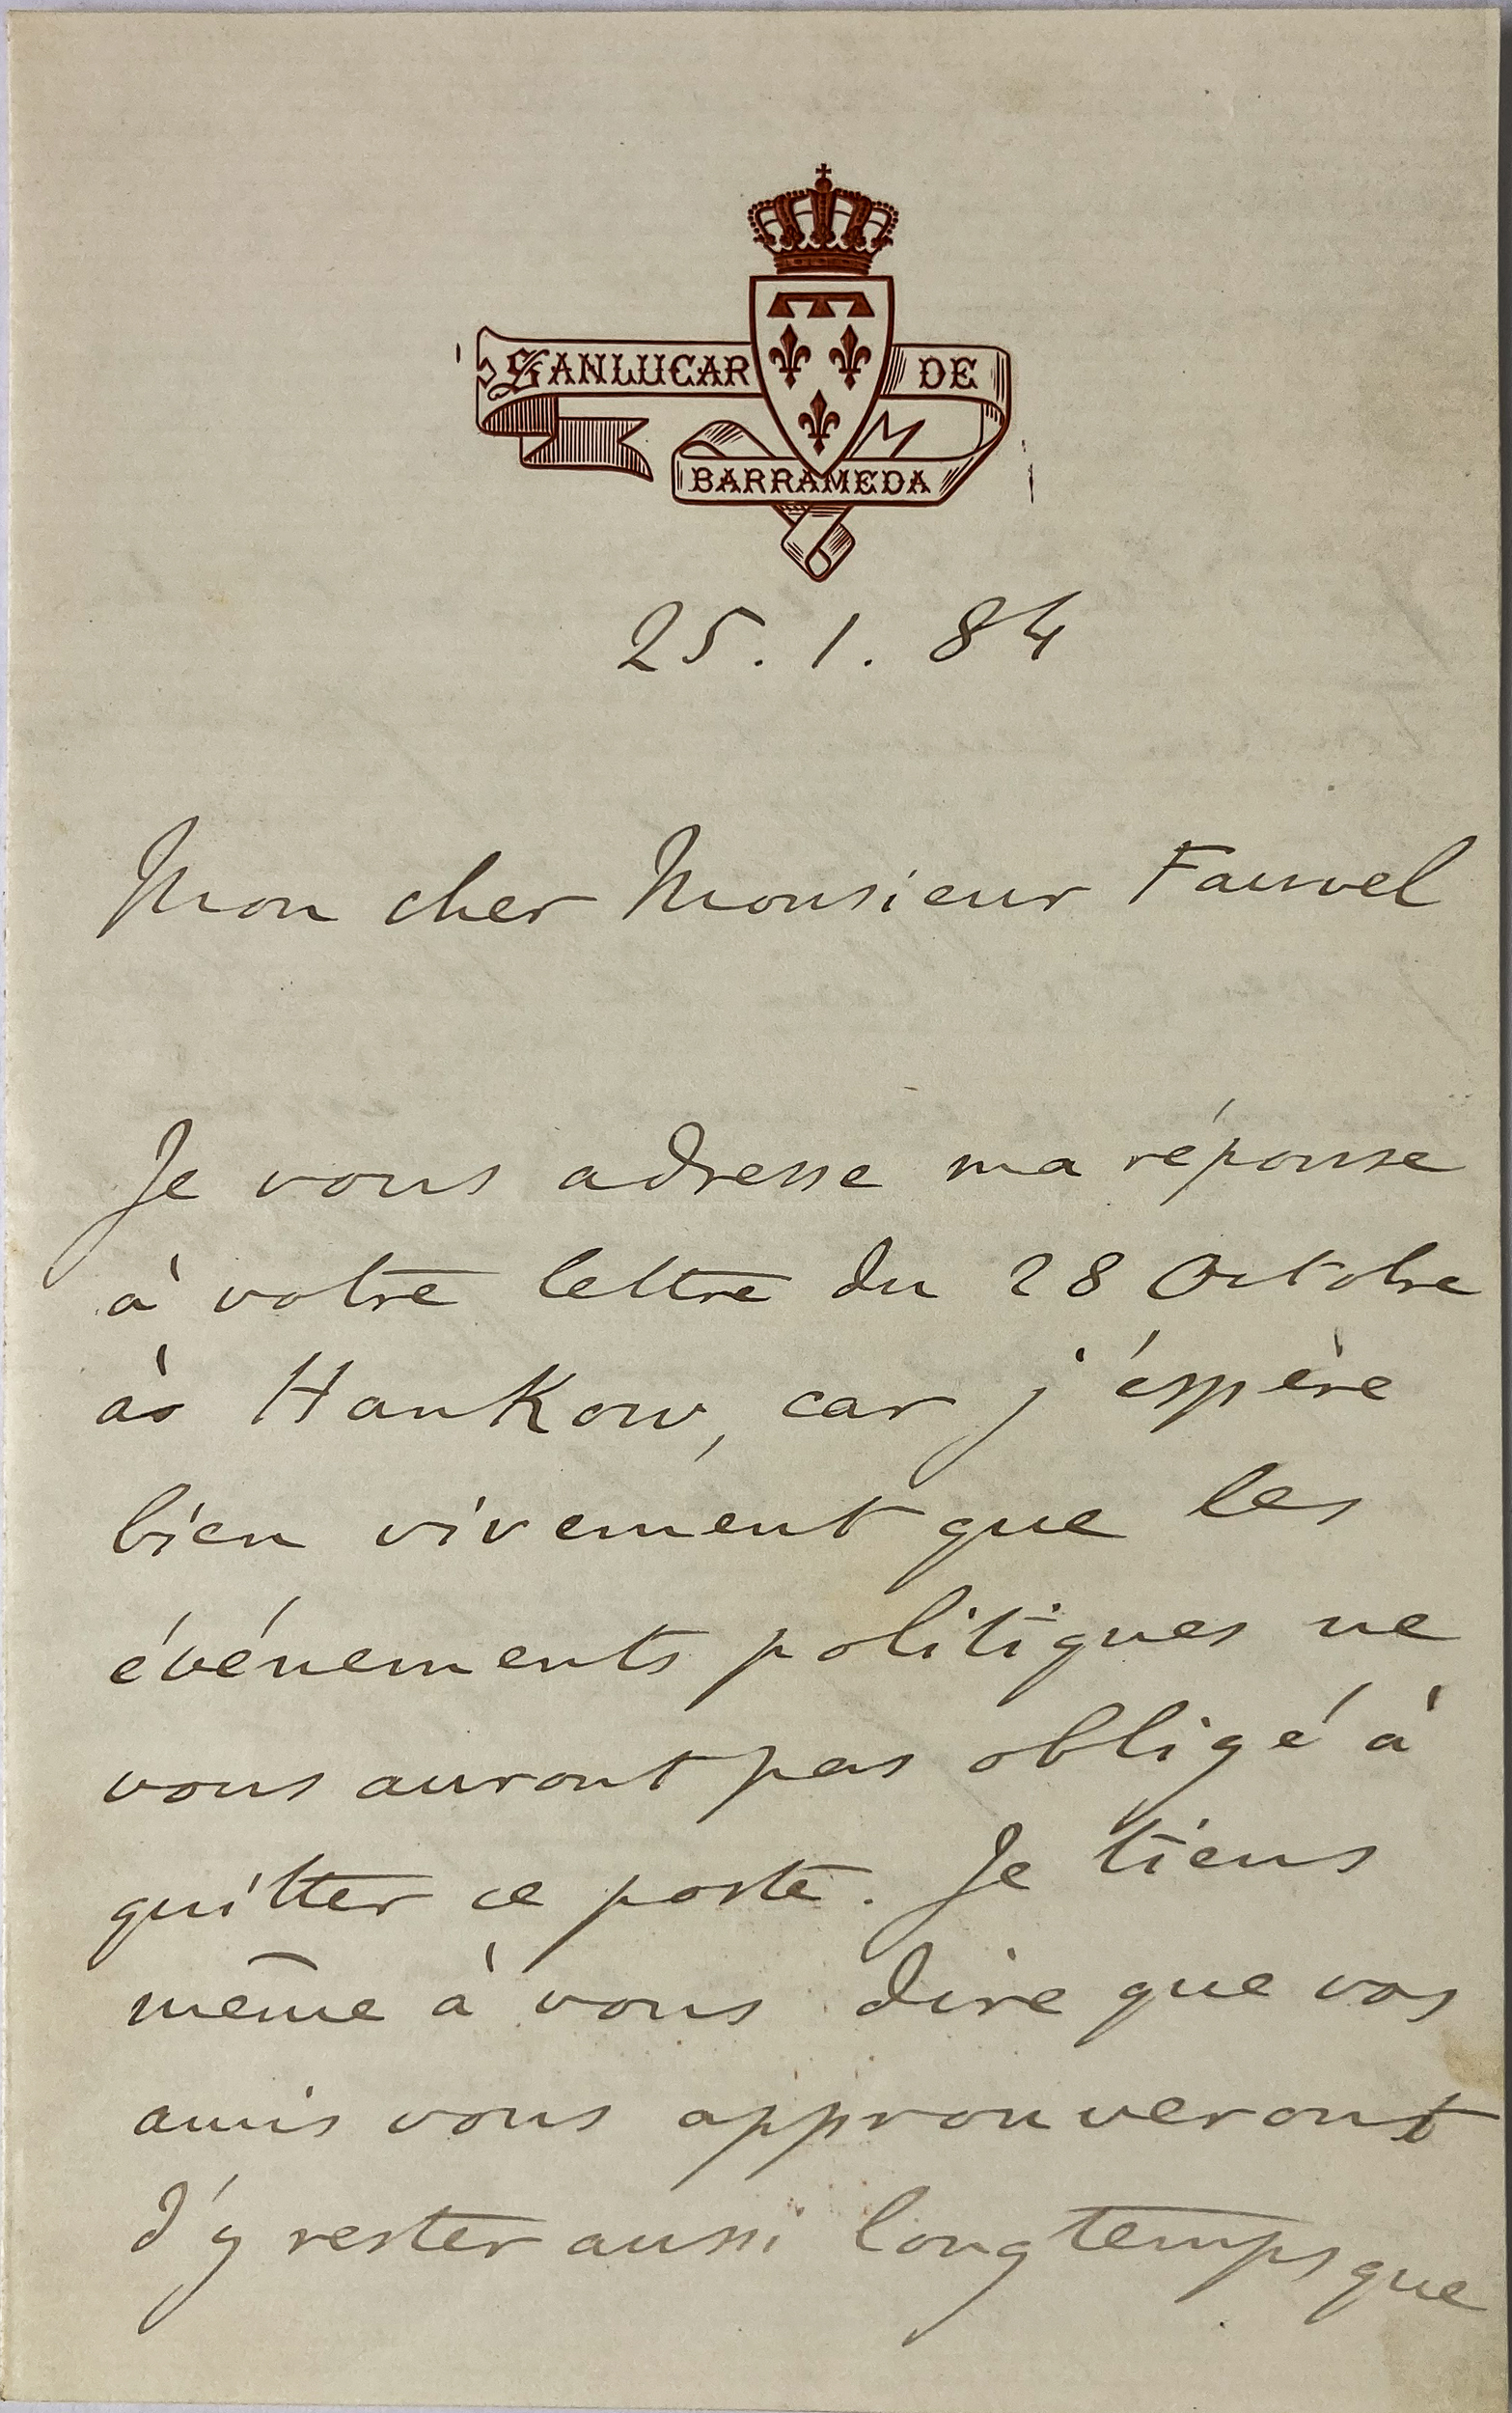 SANLUCAR DE
BARRAMEDA
25. 1. 84
Mon cher Monsieur Fauvel
Je vous adresse ma réponse
à votre lettre du 28 Octobre
à Hankow, car j'éspère
bien vivement que les
événements politiques ne
vous auront pas obligé à
quitter ce poste. Je tiens
même à vous dire que vos
amis vous approuveront
d'y rester aussi longtemps que